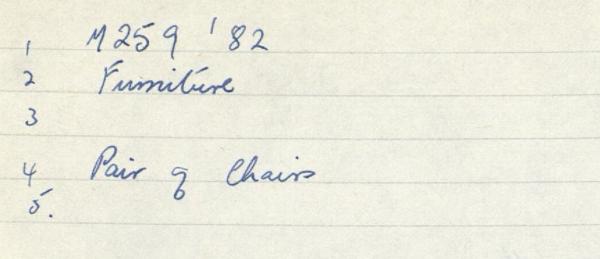 1 M259 '82
2 Furniture
3
4 Pair of Chairs
5.